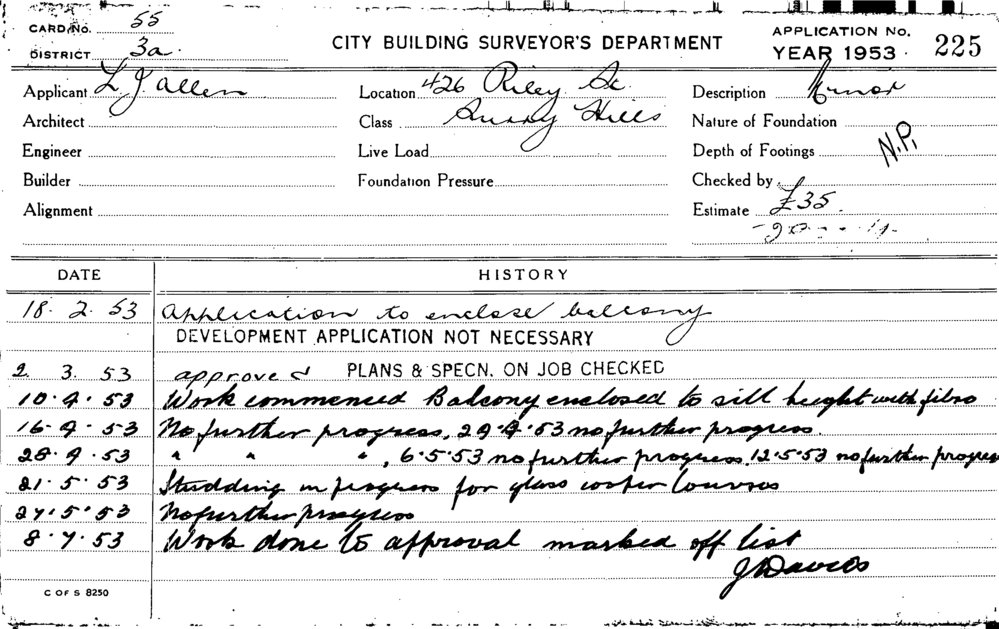 CARD/No. 55
DISTRICT 3a
CITY BUILDING SURVEYOR'S DEPARTMENT
APPLICATION No.
YEAR 1953 225
Applicant L J Allen Location 426 Riley St Description Minor
Architect Class Surry Hills Nature of Foundation
Engineer Live Load Depth of Footings N.P.
Builder Foundation Pressure Checked by
Alignment Estimate £35.
DATE HISTORY
18. 2. 53 Application to enclose balcony
DEVELOPMENT APPLICATION NOT NECESSARY
2. 3. 53 approved PLANS & SPECN. ON JOB CHECKED
10.4.53 Work commenced Balcony enclosed to sill height with fibro
16.4.53 No further progress, 24.4.53 no further progress.
28.4.53 " " ", 6.5.53 no further progress. 12.5.53 no further progress
21.5.53 Studding in progress for glass Louvres
27.5.53 No further progress
8.7.53 Work done to approval marked off list
Davies
C OF S 8250